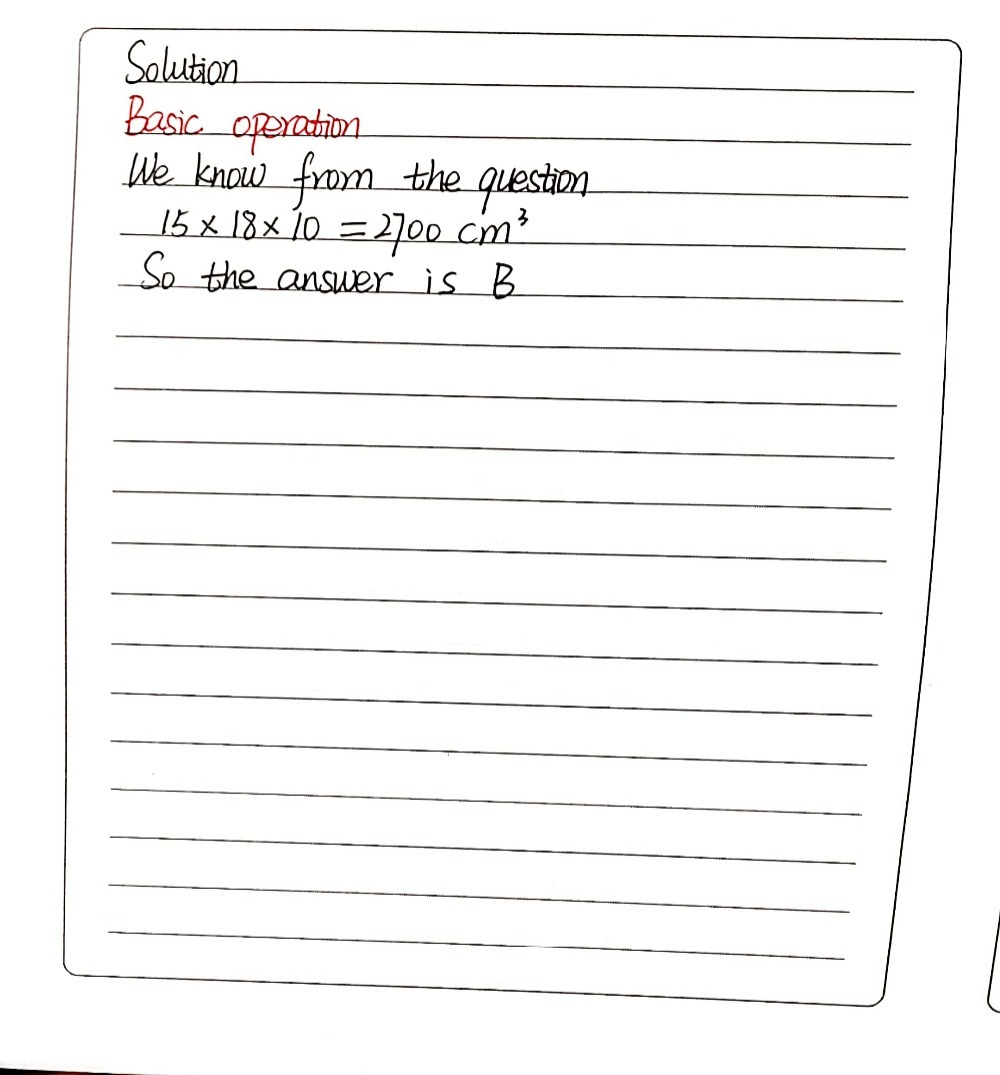 Solution
Basic operation
We know from the question
15 × 18 × 10 = 2700 cm³
So the answer is B